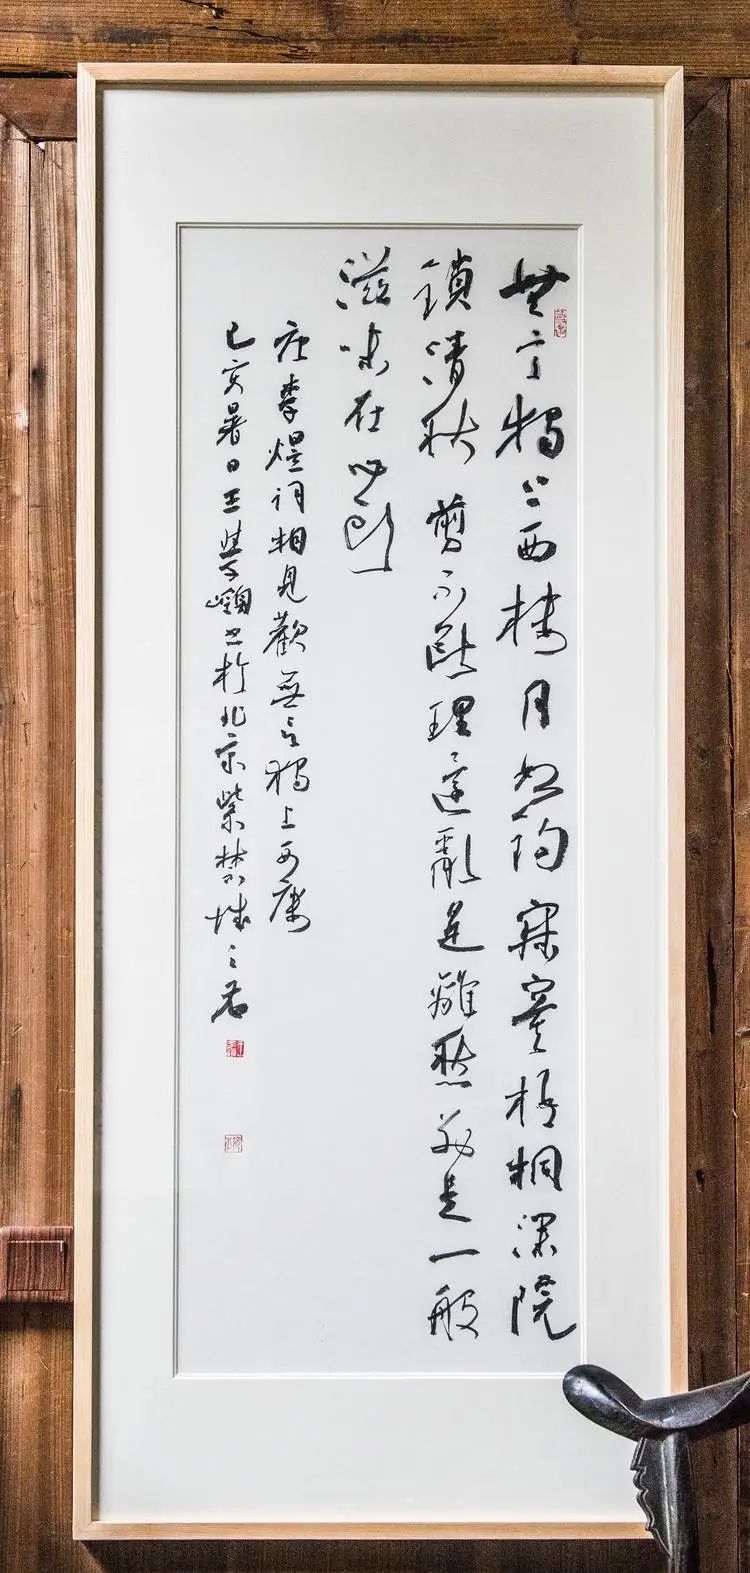 無言獨上西樓月如鉤寂寞梧桐深院
鎖清秋剪不斷理還亂是離愁別是一般
滋味在心頭
唐李煜詞相見歡無言獨上西樓
己亥暑日王學嶺書於北京紫禁城之右